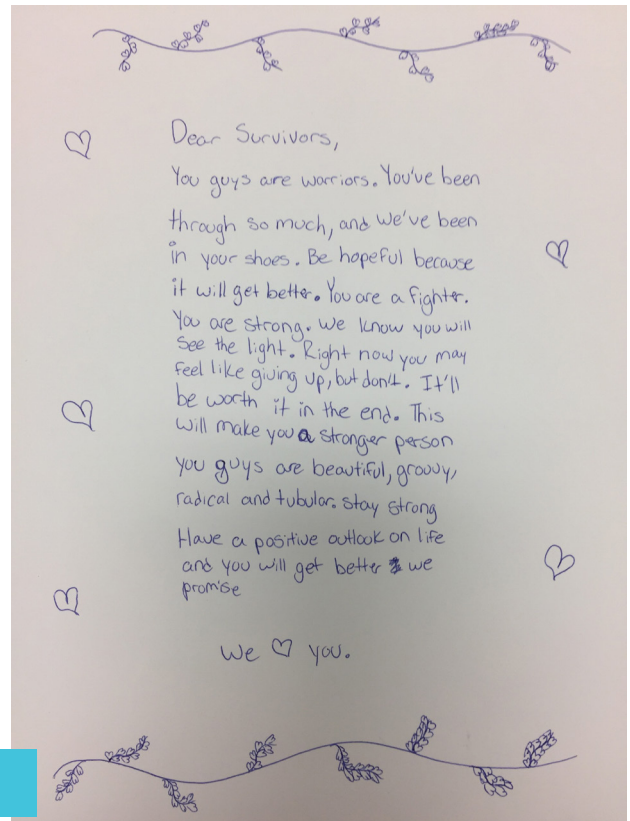 Dear Survivors,
You guys are warriors. You've been
through so much, and we've been
in your shoes. Be hopeful because
it will get better. You are a fighter.
You are strong. We know you will
see the light. Right now you may
feel like giving up, but don't. It'll
be worth it in the end. This
will make you a stronger person
you guys are beautiful, groovy,
radical and tubular. Stay strong
Have a positive outlook on life
and you will get better we
promise
We ♡ you.